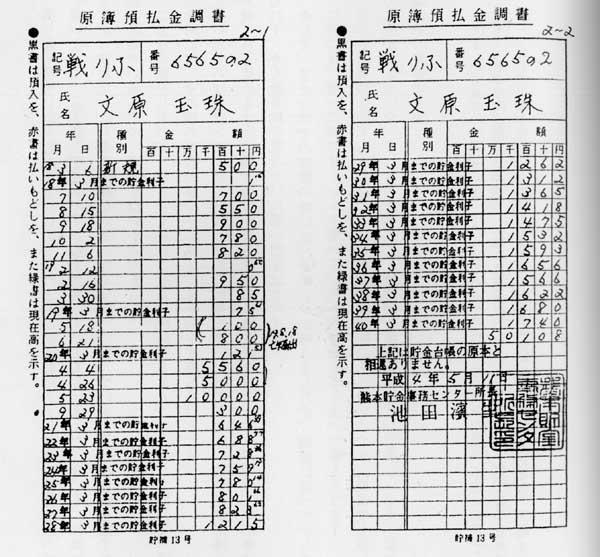 原簿預払金調書
2~1
●黒書は預入を、赤書は払いもどしを、また緑書は現在高を示す。
記号 戦りふ 番号 656592
氏名 文原玉珠
年月日 種別 金額
百 十 万 千 百 十 円
18 3 6 新規 500
18年3月までの貯金利子
7 10 700
8 15 550
9 18 900
10 2 780
11 6 820
19
2 12
2 16 950
3 30 85
19年3月までの貯金利子 75
5 18 100
6 21 800
20年3月までの貯金利子 121
4 4 5560
4 26 5000
5 23 10000
9 29 300
21年3月までの貯金利子 646
22年3月までの貯金利子 688
23年3月までの貯金利子 728
24年3月までの貯金利子 759
25年3月までの貯金利子 780
26年3月までの貯金利子 801
27年3月までの貯金利子 823
28年3月までの貯金利子 1215
貯補13号
原簿預払金調書
2~2
●黒書は預入を、赤書は払いもどしを、また緑書は現在高を示す。
記号 戦りふ 番号 656592
氏名 文原玉珠
年月日 種別 金額
百 十 万 千 百 十 円
29年3月までの貯金利子 1262
30年3月までの貯金利子 1312
31年3月までの貯金利子 1365
32年3月までの貯金利子 1418
33年3月までの貯金利子 1475
34年3月までの貯金利子 1532
35年3月までの貯金利子 1593
36年3月までの貯金利子 1656
37年3月までの貯金利子 1566
38年3月までの貯金利子 1622
39年3月までの貯金利子 1680
40年3月までの貯金利子 1740
50108
上記は貯金台帳の原本と
相違ありません。
平成4年5月11日
熊本貯金事務センター所長
池田濱
貯補13号